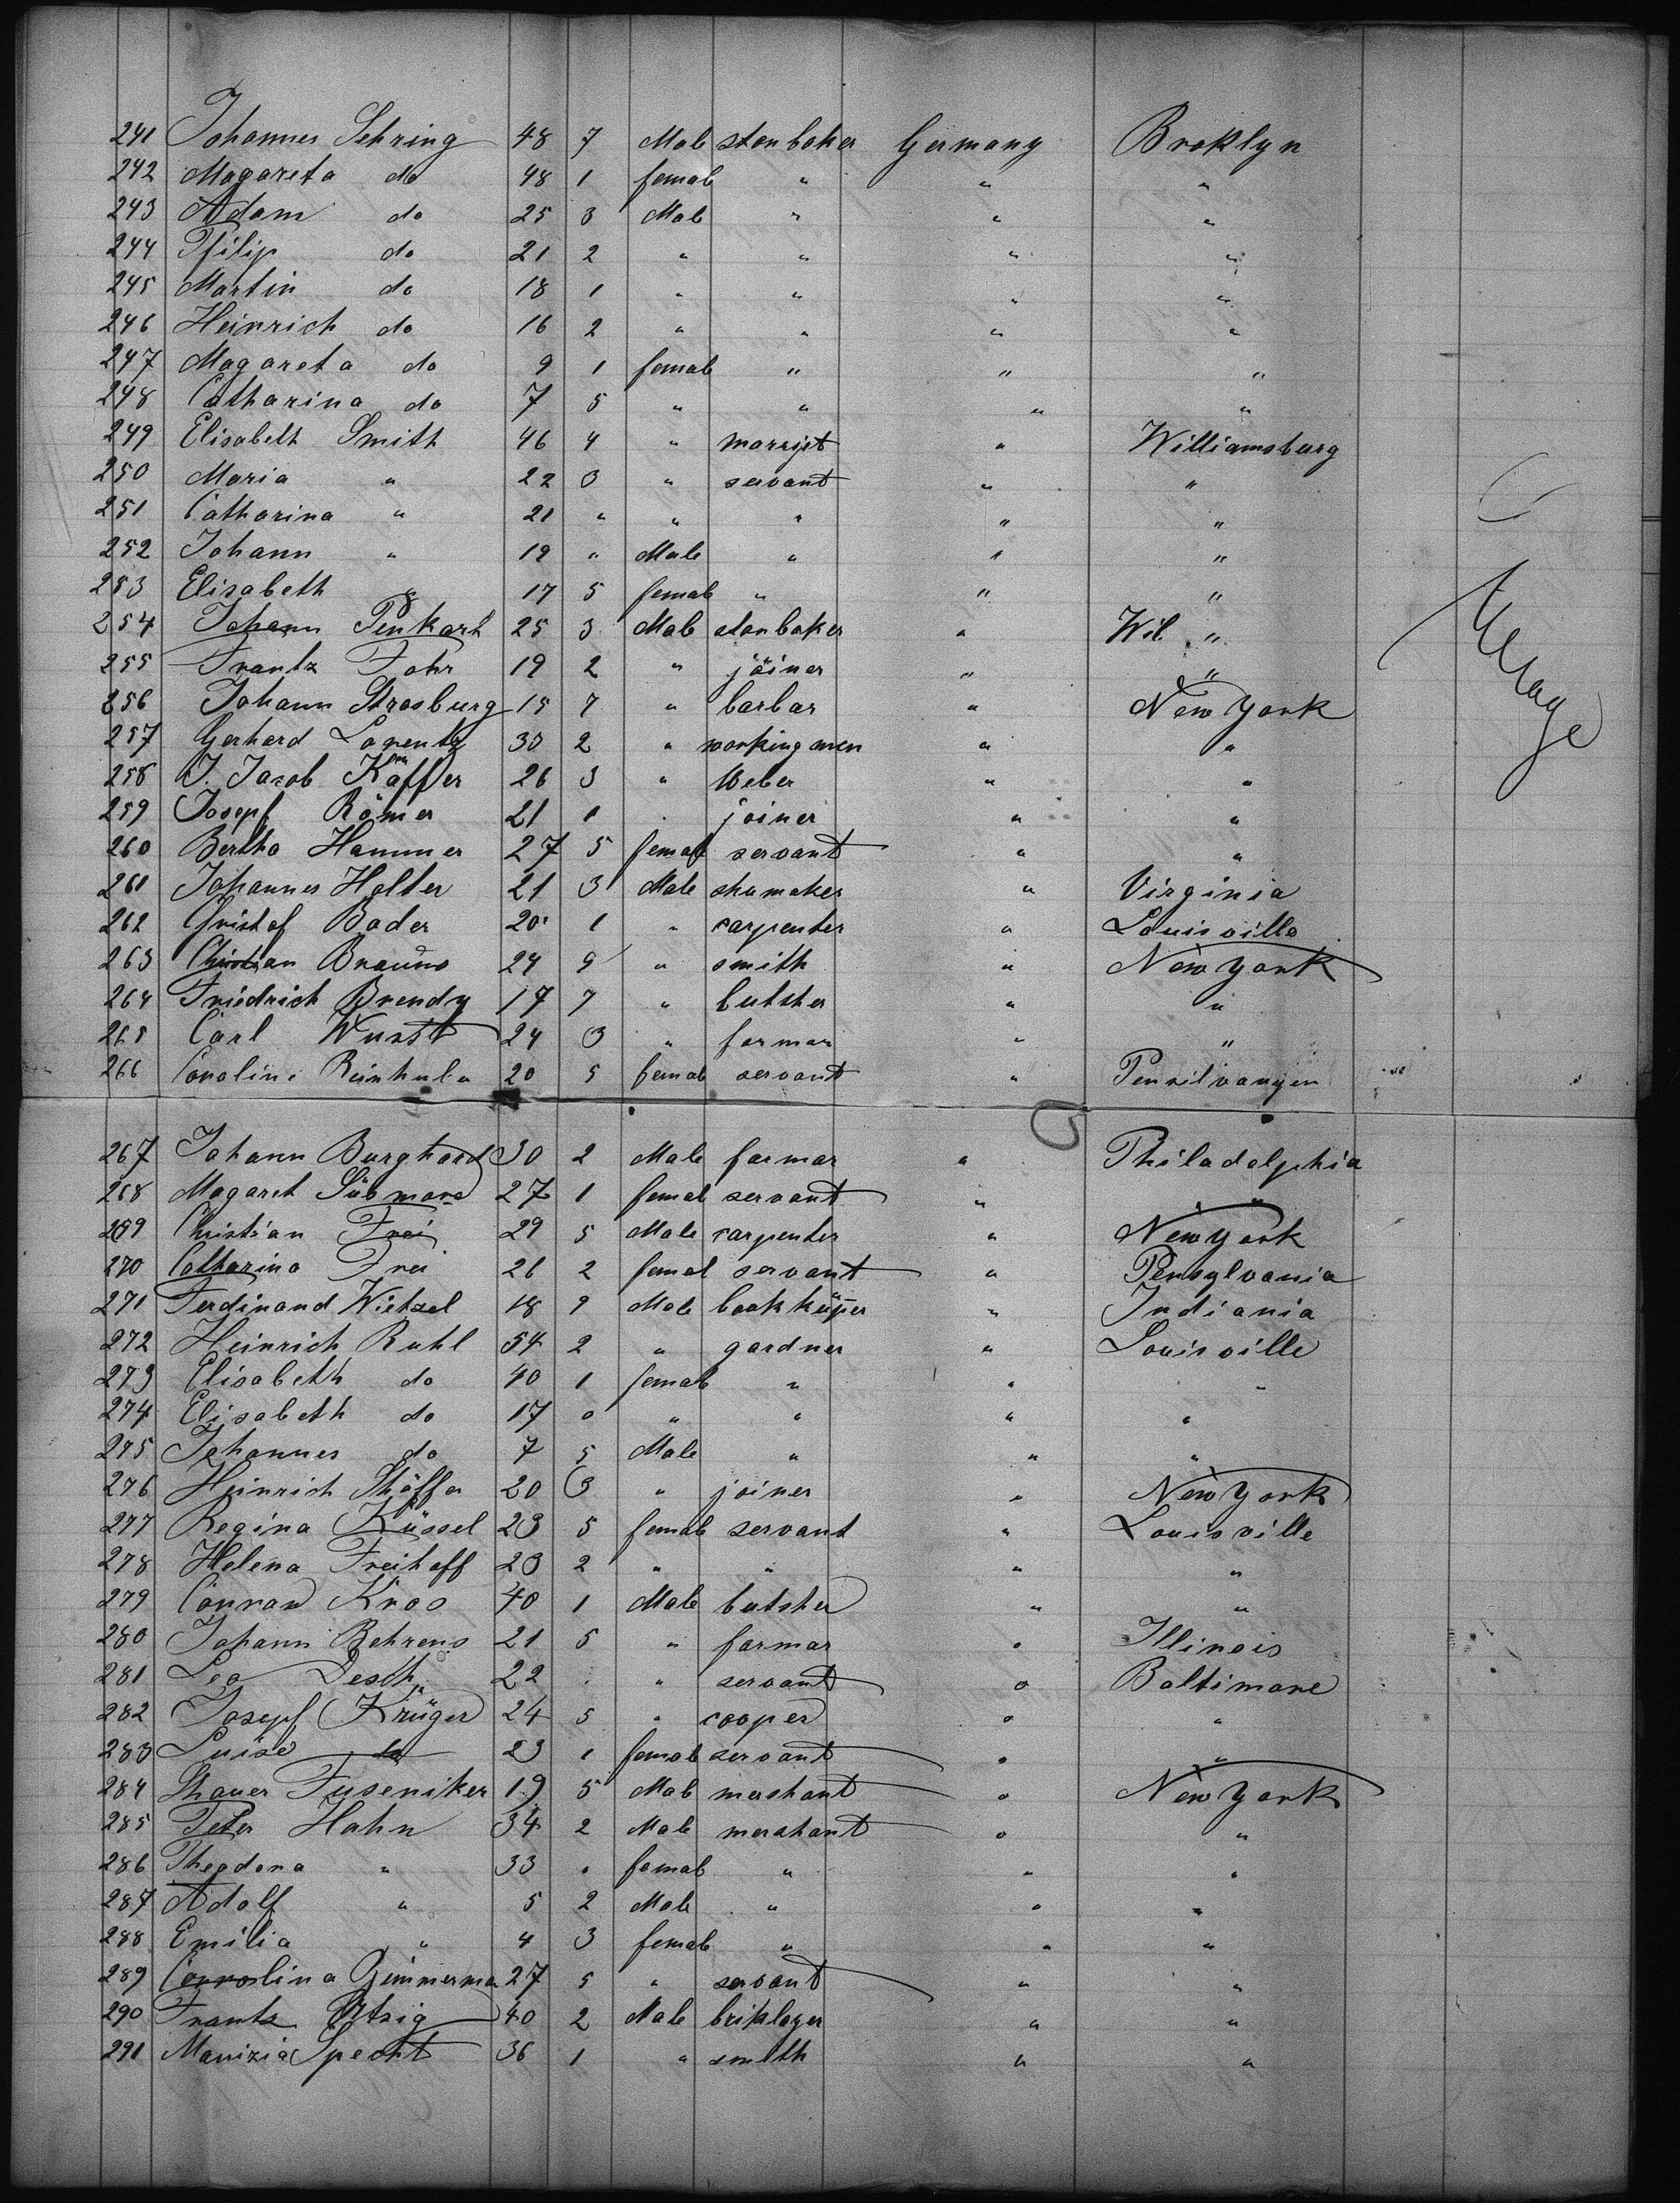 241 Johannes Sehring 48 7 Male stonbaker Germany Broklyn
242 Magareta do 48 1 femal " " "
243 Adam do 25 3 Male " " "
244 Pfilip do 21 2 " " " "
245 Martin do 18 1 " " " "
246 Heinrich do 16 2 " " " "
247 Magareta do 9 1 femal " " "
248 Catharina do 7 5 " " " "
249 Elisabeth Smith 46 4 " " Williamsburg
250 Maria " 22 3 " servant " "
251 Catharina " 21 " " " " "
252 Johann " 19 " Male " " "
253 Elisabeth " 17 5 femal " " "
254 Johann Penkart 25 3 Male stonbaker " Wil. "
255 Frantz Fohr 19 2 " joiner " "
256 Johann Strasburg 15 7 " barbar " New York
257 Gerhard Lorentz 33 2 " workingmen " "
258 J. Jacob 26 3 " Weber " "
259 Josepf Römer 21 1 " joiner " "
260 Bertha Hammer 27 5 femal servant " "
261 Johannes Holter 21 3 Male shumaker " Virginia
262 Cristof Bader 20 1 " carpenter " Louisville
263 Christian Brauns 24 9 " smith " New York
264 Friedrich Brendy 17 7 " butsher " "
265 Carl Wurst 24 3 " farmar " "
266 Caroline 20 5 femal servant " Pensilvanyen
267 Johann Burghard 30 2 Male farmar " Philadelphia
268 Magaret 27 1 femal servant " "
269 Christian Frei 29 5 Male carpenter " New York
270 Catharina Frei 26 2 femal servant " Pensylvania
271 Ferdinand Wietzel 18 9 Male " Indiania
272 Heinrich Ruhl 54 2 " gardner " Louisville
273 Elisabeth do 40 1 femal " " "
274 Elisabeth do 17 " " " " "
275 Johannes do 7 5 Male " " "
276 Heinrich Shäffer 20 3 " joiner " New York
277 Regina Küssel 23 5 femal servant " Louisville
278 Helena Freihoff 23 2 " " " "
279 Conrad Kros 40 1 Male butsher " "
280 Johann Behrens 21 5 " farmar " Illinois
281 Leo Desch 22 " " servant " Baltimore
282 Josepf Krüger 24 5 " cooper " "
283 Luise do 23 1 femal servant " "
284 Fuseniker 19 5 Male mershant " New York
285 Peter Hahn 34 2 Male mershant " "
286 Theodora " 33 " femal " " "
287 Adolf " 5 2 Male " " "
288 Emilia " 4 3 femal " " "
289 Zimmerma 27 5 " servant " "
290 Frantz Utzig 40 2 Male briklayer " "
291 Specht 36 1 " smith " "